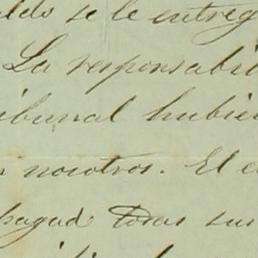 aldo se le entreg
La responsabi
ibunal hubie
n nosotros. El e
pagad todas sus